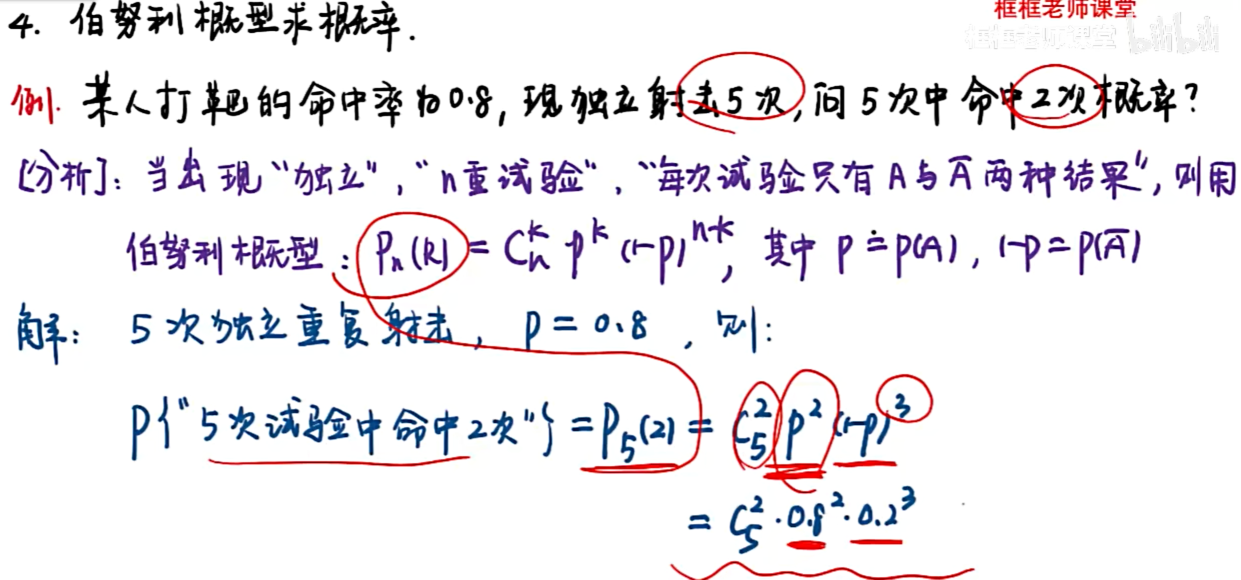 框框老师课堂
框框老师课堂 bilibili
4. 伯努利概型求概率.
例. 某人打靶的命中率为0.8, 现独立射击5次, 问5次中命中2次概率?
[分析]: 当出现"独立", "n重试验", "每次试验只有A与A̅两种结果", 则用
伯努利概型: Pₙ(k) = Cₙᵏ pᵏ (1-p)ⁿ⁻ᵏ, 其中 p ≐ p(A), 1-p = p(A̅)
解: 5次独立重复射击, p = 0.8, 则:
P{"5次试验中命中2次"} = P₅(2) = C₅² p² (1-p)³
= C₅² · 0.8² · 0.2³